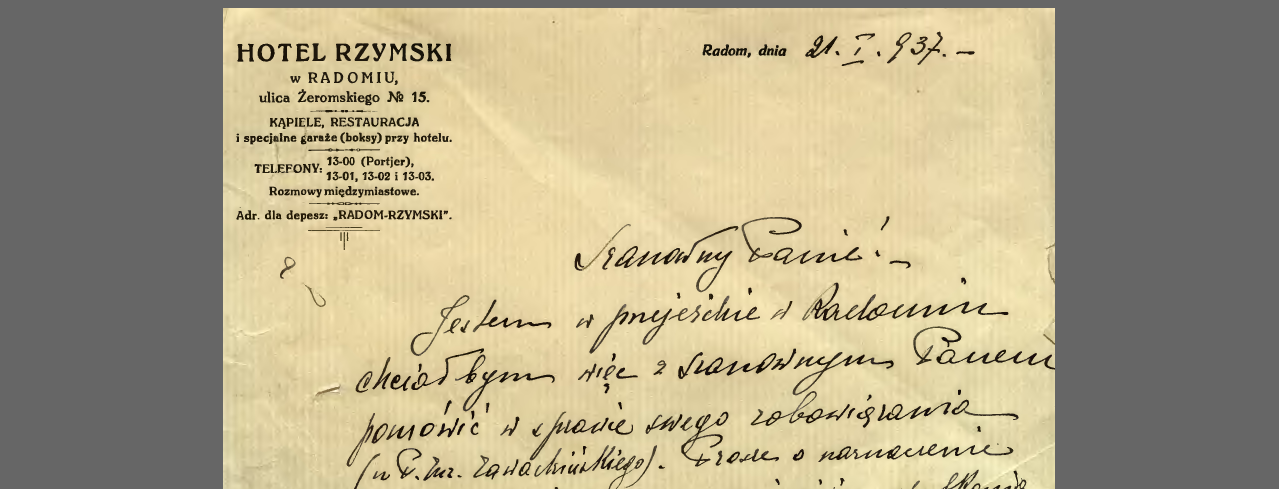 HOTEL RZYMSKI
w RADOMIU,
ulica Żeromskiego № 15.
KĄPIELE, RESTAURACJA
i specjalne garaże (boksy) przy hotelu.
TELEFONY: 13-00 (Portjer),
13-01, 13-02 i 13-03.
Rozmowy międzymiastowe.
Adr. dla depesz: „RADOM-RZYMSKI".
Radom, dnia 21. I. 937. —
Szanowny Panie! —
Jestem w przejeździe w Radomiu
chciałbym więc z szanownym Panem
pomówić w sprawie swego zobowiązania
(u P. Inż. Zawadzkiego). Proszę o naznaczenie